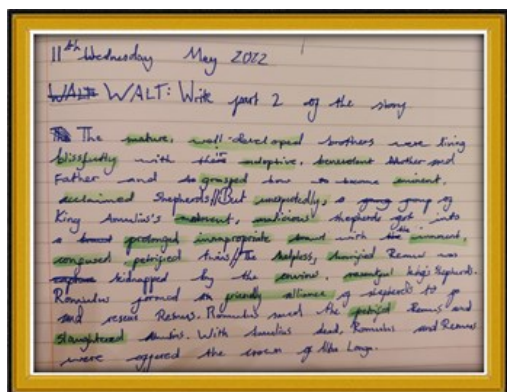 11th Wednesday May 2022
WALT: Write part 2 of the story
The mature, well-developed brothers were living
blissfully with their adoptive, benevolent Mother and
Father and so grasped how to become eminent,
acclaimed Shepherds//But unexpectedly, a group of
King Amulius's malicious shepherds got into
a prolonged inappropriate brawl with the innocent,
confused petrified twins//The helpless, horrified Remus was
kidnapped by the envious, resentful king's Shepherds.
Romulus formed a friendly alliance of shepherds to go
and rescue Remus. Romulus saved the petrified Remus and
slaughtered Amulius. With Amulius dead, Romulus and Remus
were offered the crown of Alba Longa.